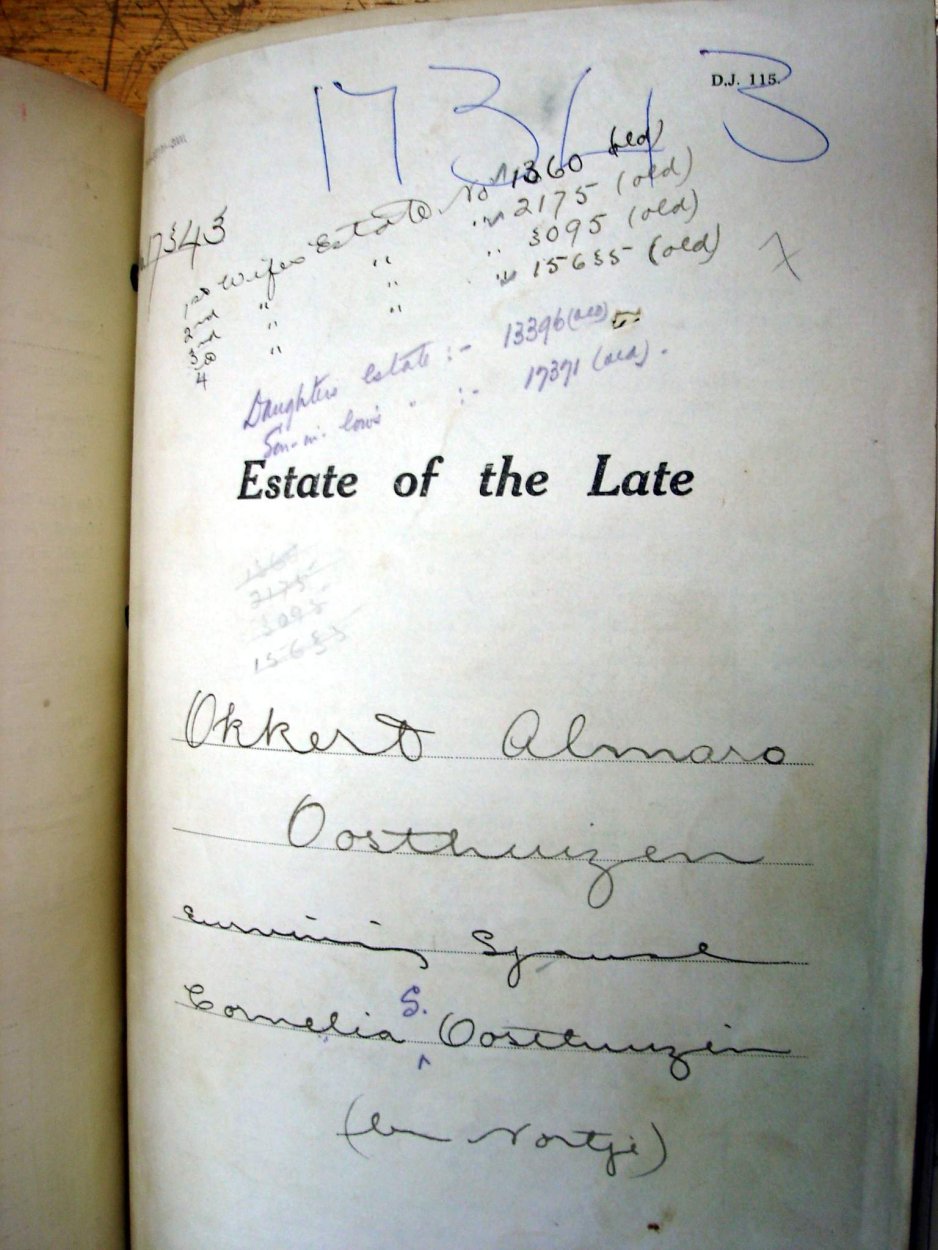 D.J. 115.
17343
17343
1st Wifes Estate No 1360 (old)
2nd " " " 2175 (old)
3rd " " " 3095 (old)
4 " " " 15635 (old)
X
Daughters Estate :- 13396 (old)
Son-in-law's " :- 17371 (old).
Estate of the Late
1360
2175
3095
15635
Okkert Almaro
Oosthuizen
Surviving Spouse
Cornelia S. Oosthuizen
(born Nortje)